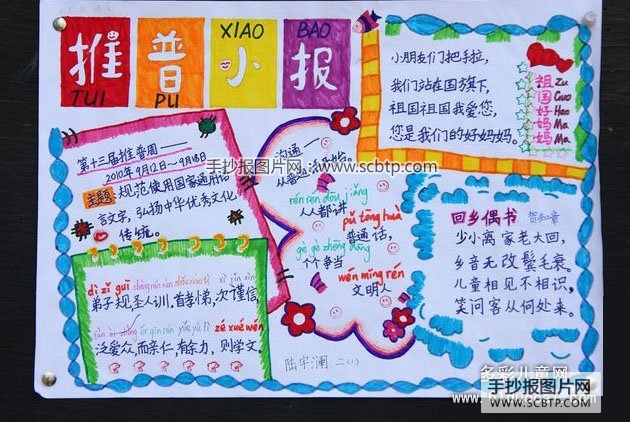 推普小报
TUI PU XIAO BAO
小朋友们把手拉,
我们站在国旗下,
祖国祖国我爱您,
您是我们的好妈妈。
祖 Zu
国 Guo
好 Hao
妈 Ma
妈 Ma
第十三届推普周——
2010年9月12日~9月18日
主题:规范使用国家通用语
言文字,弘扬中华优秀文化
传统。
沟通——
从
开始,
rén rén dōu jiǎng
人人都讲
pǔ tōng huà
普通话,
gè gè zhēng dāng
个个争当
wén míng rén
文明人
回乡偶书 贺知章
少小离家老大回,
乡音无改鬓毛衰。
儿童相见不相识,
笑问客从何处来。
dì zǐ guī
弟子规,圣人训,首孝弟,次谨信,
zé xué wén
泛爱众,而亲仁,有余力,则学文。
陆宇澜 二(1)
手抄报图片网://www.scbtp.com
多彩儿童网
手抄报图片网
WWW.SCBTP.COM